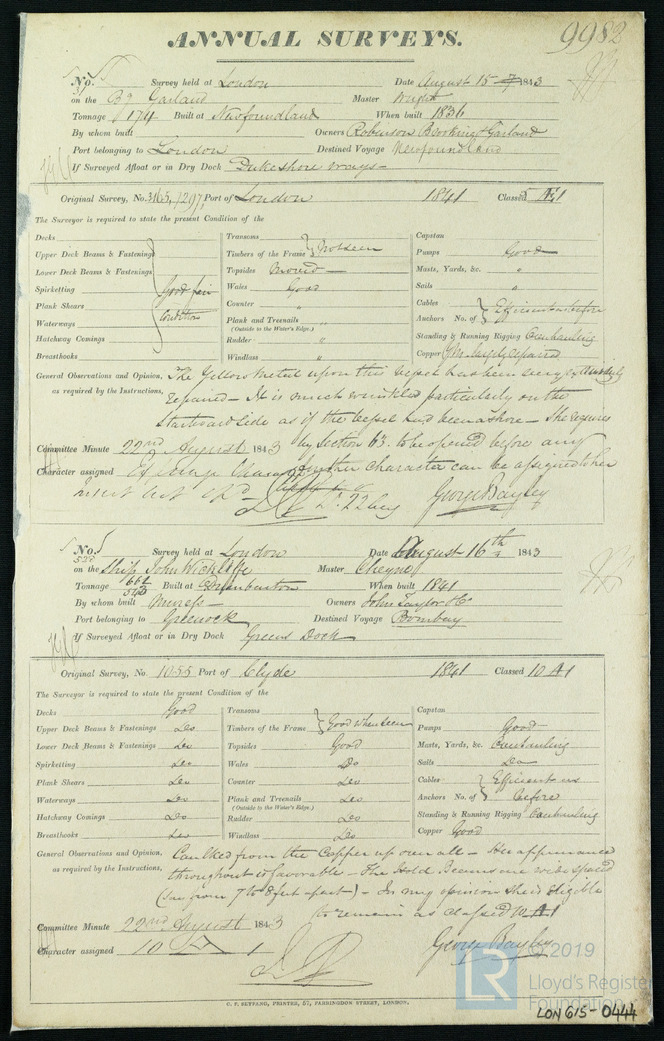 ANNUAL SURVEYS. 9982
No. 51 Survey held at London Date August 15 1843
on the Bg Garland Master Wright
Tonnage 174 Built at Newfoundland When built 1836
By whom built Owners Robinson Brooking & Garland
Port belonging to London Destined Voyage Newfoundland
If Surveyed Afloat or in Dry Dock Dukeshore ways
Original Survey, No. Port of London 1841 Classed 5 Æ1
The Surveyor is required to state the present Condition of the
Decks Transoms Capstan
Upper Deck Beams & Fastenings Timbers of the Frame } Not seen Pumps Good
Lower Deck Beams & Fastenings Topsides Masts, Yards, &c. "
Spirketting Good fair Wales Good Sails "
Plank Shears Condition Counter " Cables } Efficient as before
Waterways Plank and Treenails " Anchors No. of
(Outside to the Water's Edge.)
Hatchway Comings Rudder " Standing & Running Rigging Overhauling
Breasthooks Windlass " Copper repaired
General Observations and Opinion, The Yellow Metal upon this vessel has been
as required by the Instructions, repaired – It is much wrinkled particularly on the
Starboard side as if the vessel had been ashore – She requires
by Section 63. to be opened before any
Committee Minute 22nd August 1843
further character can be assigned to her
Character assigned
22 Aug George Bayley
No. 52 Survey held at London Date August 16th 1843
on the Ship John Wickliffe Master Cheyne
Tonnage 662 Built at Dumbarton When built 1841
543
By whom built Owners John Taylor & Co
Port belonging to Greenock Destined Voyage Bombay
If Surveyed Afloat or in Dry Dock Greens Dock
Original Survey, No. 1055 Port of Clyde 1841 Classed 10 A1
The Surveyor is required to state the present Condition of the
Decks Good Transoms Capstan
Upper Deck Beams & Fastenings Do Timbers of the Frame } Good when seen Pumps Good
Lower Deck Beams & Fastenings Do Topsides Good Masts, Yards, &c. Overhauling
Spirketting Do Wales Do Sails Do
Plank Shears Do Counter Do Cables } Efficient as
Waterways Do Plank and Treenails Do Anchors No. of before
(Outside to the Water's Edge.)
Hatchway Comings Do Rudder Do Standing & Running Rigging Overhauling
Breasthooks Do Windlass Do Copper Good
General Observations and Opinion, Caulked from the Copper up over all – Her appearance
as required by the Instructions, throughout is favorable – The Hold Beams are wide spaced
(say from 7 to 8 feet apart) – In my opinion she is eligible
to remain as classed 10 A1
Committee Minute 22nd August 1843
Character assigned 10 A 1 George Bayley
C. F. SEYFANG, PRINTER, 57, FARRINGDON STREET, LONDON.
LR © 2019
Lloyd's Register
Foundation
LON 615-0444